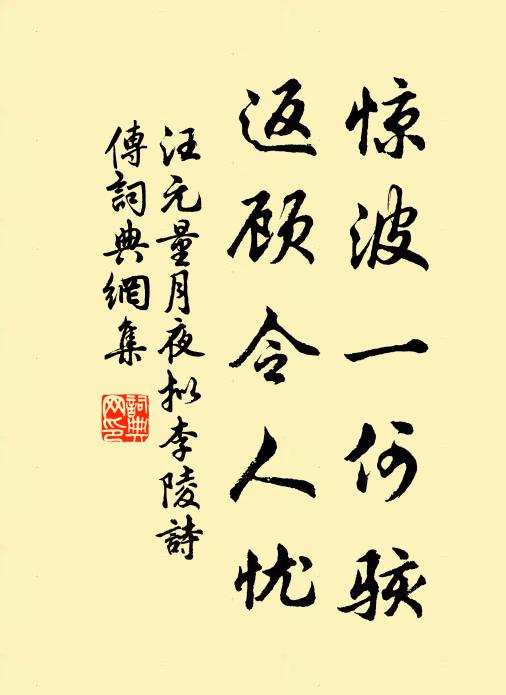 惊波一何骇
返顾令人忧
汪元量月夜拟李陵詩
傳詞典網集
詞典
网印